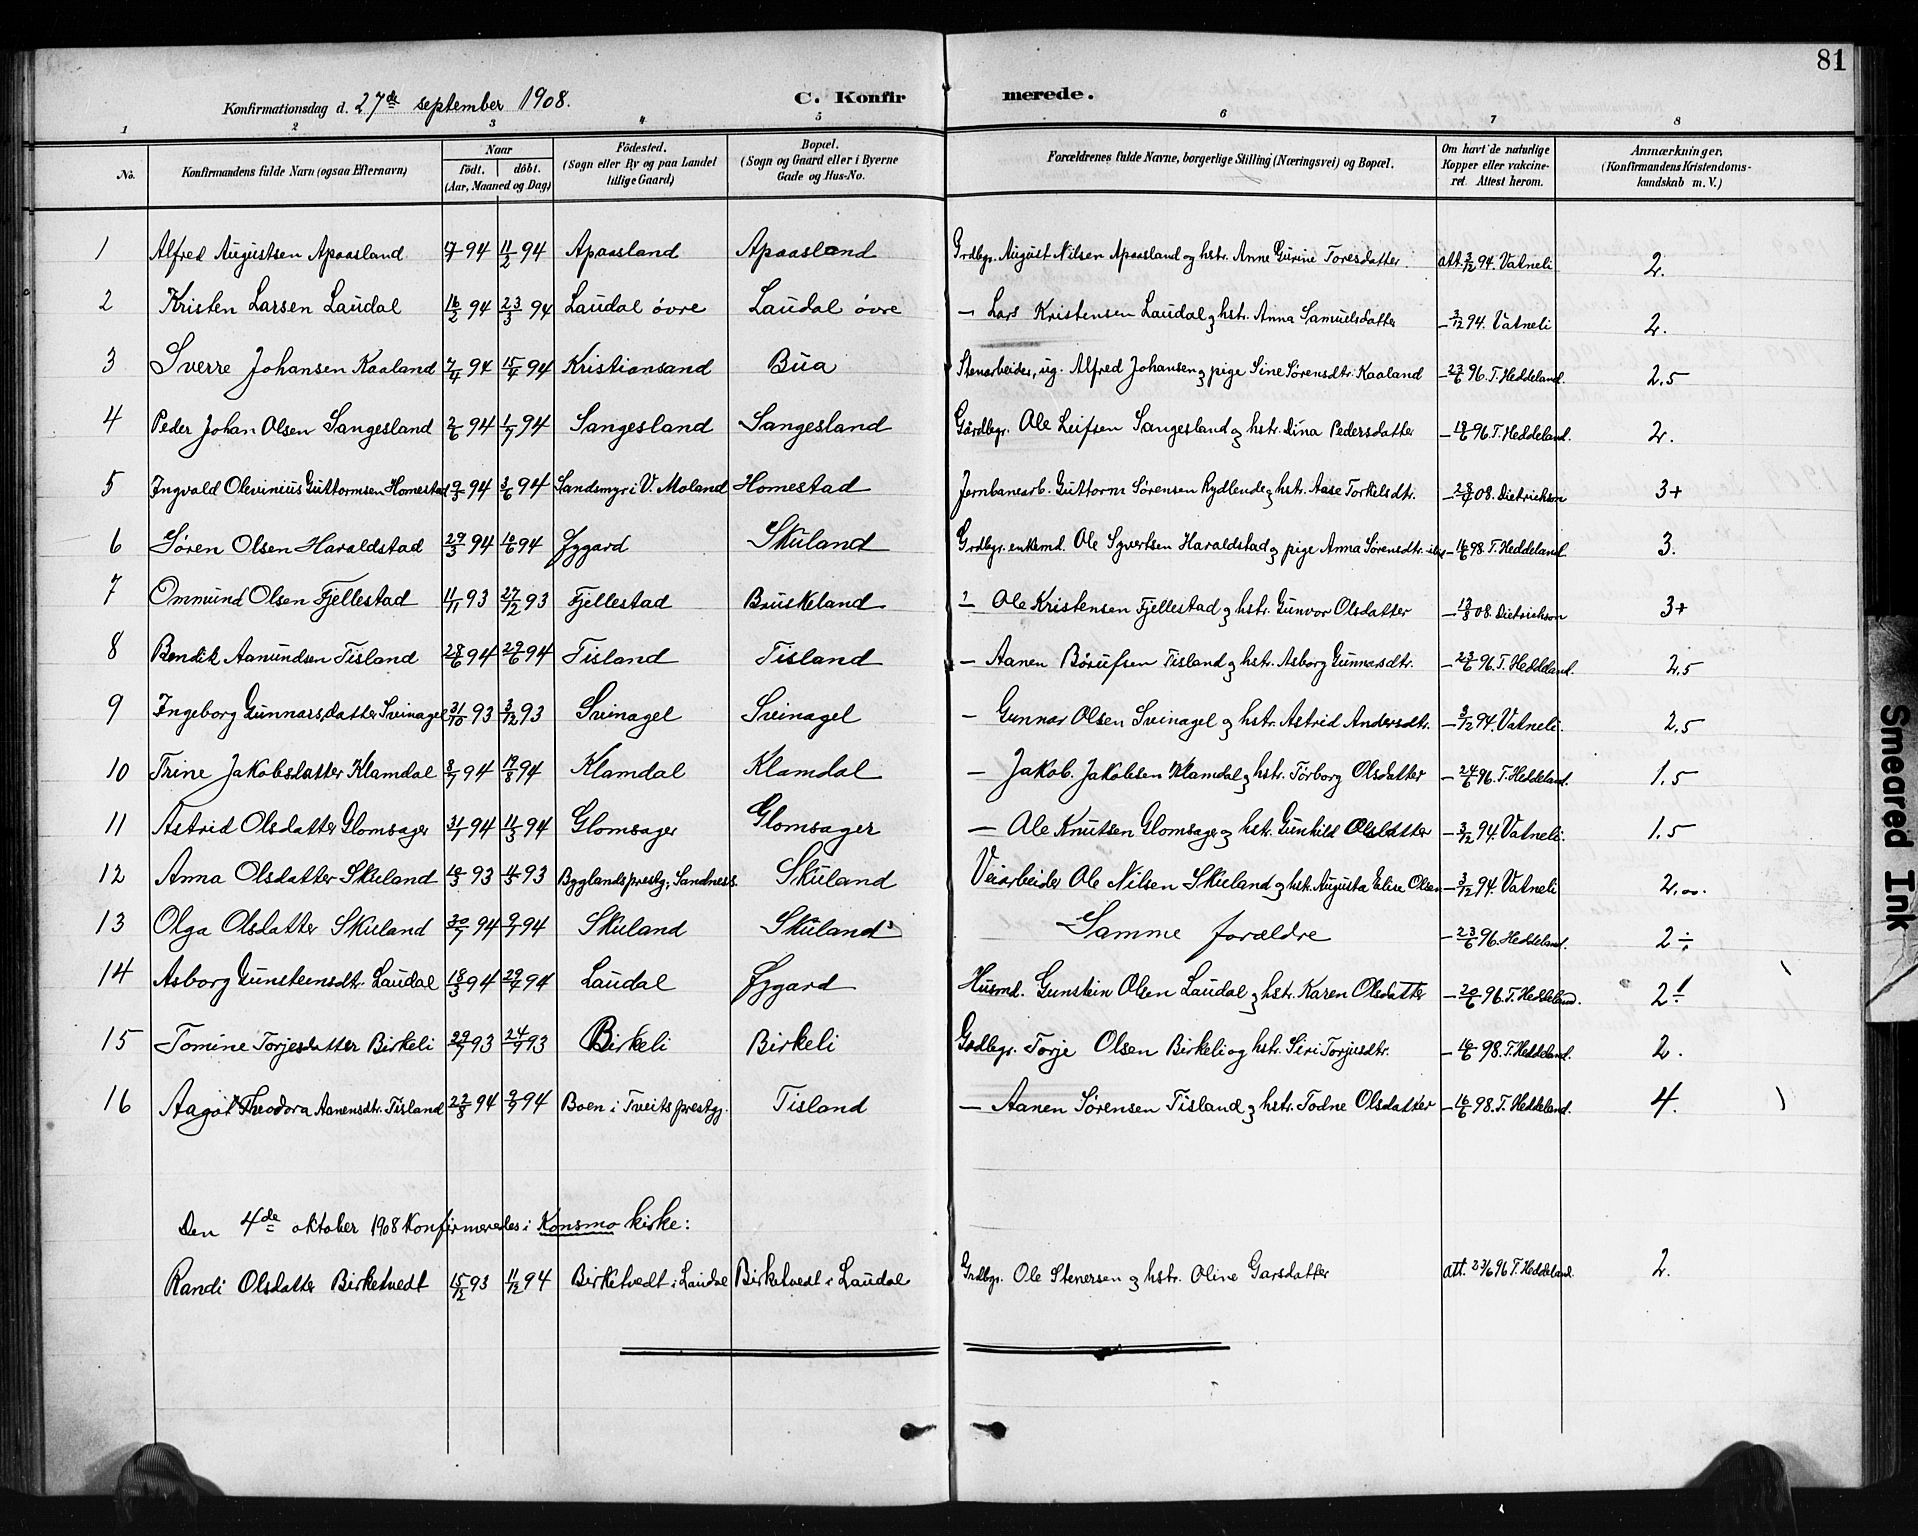 81
Konfirmationsdag d. 27de september 1908. C. Konfirmerede.
1 2 3 4 5 6 7 8
No. Konfirmandens fulde Navn (ogsaa Efternavn) Naar födt. döbt. (Aar, Maaned og Dag) Födested. (Sogn eller By og paa Landet tillige Gaard) Bopæl. (Sogn og Gaard eller i Byerne Gade og Hus-No. Forældrenes fulde Navne, borgerlige Stilling (Næringsvei) og Bopæl. Om havt de naturlige Kopper eller vakcineret. Attest herom. Anmærkninger, (Konfirmandens Kristendomskundskab m. V.)
1 Alfred Augustsen Apaasland 94 11/2 94 Apaasland Apaasland Grdbgr. August Nilsen Apaasland og hstr. Anne Gurine Toresdatter. att. 3/12 94. Vatneli 2.
2 Kristen Larsen Laudal 16/2 94 23/3 94 Laudal övre Laudal övre — Lars Kristensen Laudal & hstr. Anna Samuelsdatter — 3/12 94. Vatneli 2.
3 Sverre Johansen Kaaland 7/4 94 15/4 94 Kristiansand Bua Stenarbeider, ug. Alfred Johansen & pige Sine Sørensdtr. Kaaland — 23/6 96. T. Heddeland. 2.5
4 Peder Johan Olsen Sangesland 2/6 94 1/7 94 Sangesland Sangesland Gårdbgr. Ole Leifsen Sangesland & hstr. Dina Pedersdatter — 18/6 96. T. Heddeland. 2.
5 Ingvald Olevinius Guttormsen Homestad 94 3/6 94 Sandsmyr i V. Moland Homestad Jernbanearb. Guttorm Sørensen Rydlende & hstr. Aase Torkelsdtr. 08. Dietrichson 3+
6 Søren Olsen Haraldstad 29/3 94 10/6 94 Øygard Skuland Grdbgr. enkemd. Ole Syvertsen Haraldstad & pige Anna Sørensdtr. — 16/6 98. T. Heddeland 3.
7 Ommund Olsen Fjellestad 11/11 93 27/12 93 Fjellestad Bruskeland — Ole Kristensen Fjellestad & hstr. Gunvor Olsdatter — 13/8 08. Dietrichson 3+
8 Bendik Aanundsen Tisland 28/6 94 29/6 94 Tisland Tisland — Aanen Børufsen Tisland & hstr. Asborg Gunnarsdtr. — 23/6 96. T. Heddeland. 2.5
9 Ingeborg Gunnarsdatter Sveinagel 31/10 93 3/12 93 Sveinagel Sveinagel — Gunnar Olsen Sveinagel & hstr. Astrid Andersdtr. — 3/12 94. Vatneli. 2.5
10 Trine Jakobsdatter Klamdal 8/7 94 19/8 94 Klamdal Klamdal — Jakob Jakobsen Klamdal & hstr. Torborg Olsdatter — 24/6 96. T. Heddeland. 1.5
11 Astrid Olsdatter Glomsager 31/1 94 11/3 94 Glomsager Glomsager — Ole Knutsen Glomsager & hstr. Gunhild Olsdatter — 3/12 94. Vatneli. 1.5
12 Anna Olsdatter Skuland 10/3 93 93 Byglands prestg., Sandness Skuland Veiarbeider Ole Nilsen Skuland & hst. Augusta Elise Olsen — 3/12 94. Vatneli 2.00.
13 Olga Olsdatter Skuland 30/7 94 94 Skuland Skuland Samme forældre — 23/6 96. Heddeland. 2 ÷
14 Asborg Gunsteensdtr. Laudal 18/3 94 29/4 94 Laudal Øygard Husmd. Gunstein Olsen Laudal & hstr. Karen Olsdatter — 20/6 96. T. Heddeland. 2
15 Tomine Torjesdatter Birkeli 93 93 Birkeli Birkeli Grdbgr. Torje Olsen Birkeli og hstr. Siri Torjusdtr. — 16/6 98. T. Heddeland. 2.
16 Aagot Theodora Aanensdtr. Tisland 22/8 94 94 Boen i Tveits prestgj. Tisland — Aanen Sørensen Tisland & hstr. Todne Olsdatter — 16/6 98. T. Heddeland. 4.
Den 4de oktober 1908 konfirmeredes i Konsmo kirke:
Randi Olsdatter Birketvedt 15/12 93 11/12 94 Birketvedt i Laudal Birketvedt i Laudal Grdbgr. Ole Stenersen & hstr. Oline Garsdatter att. 23/6 96 T. Heddeland. 2.
Smeared Ink